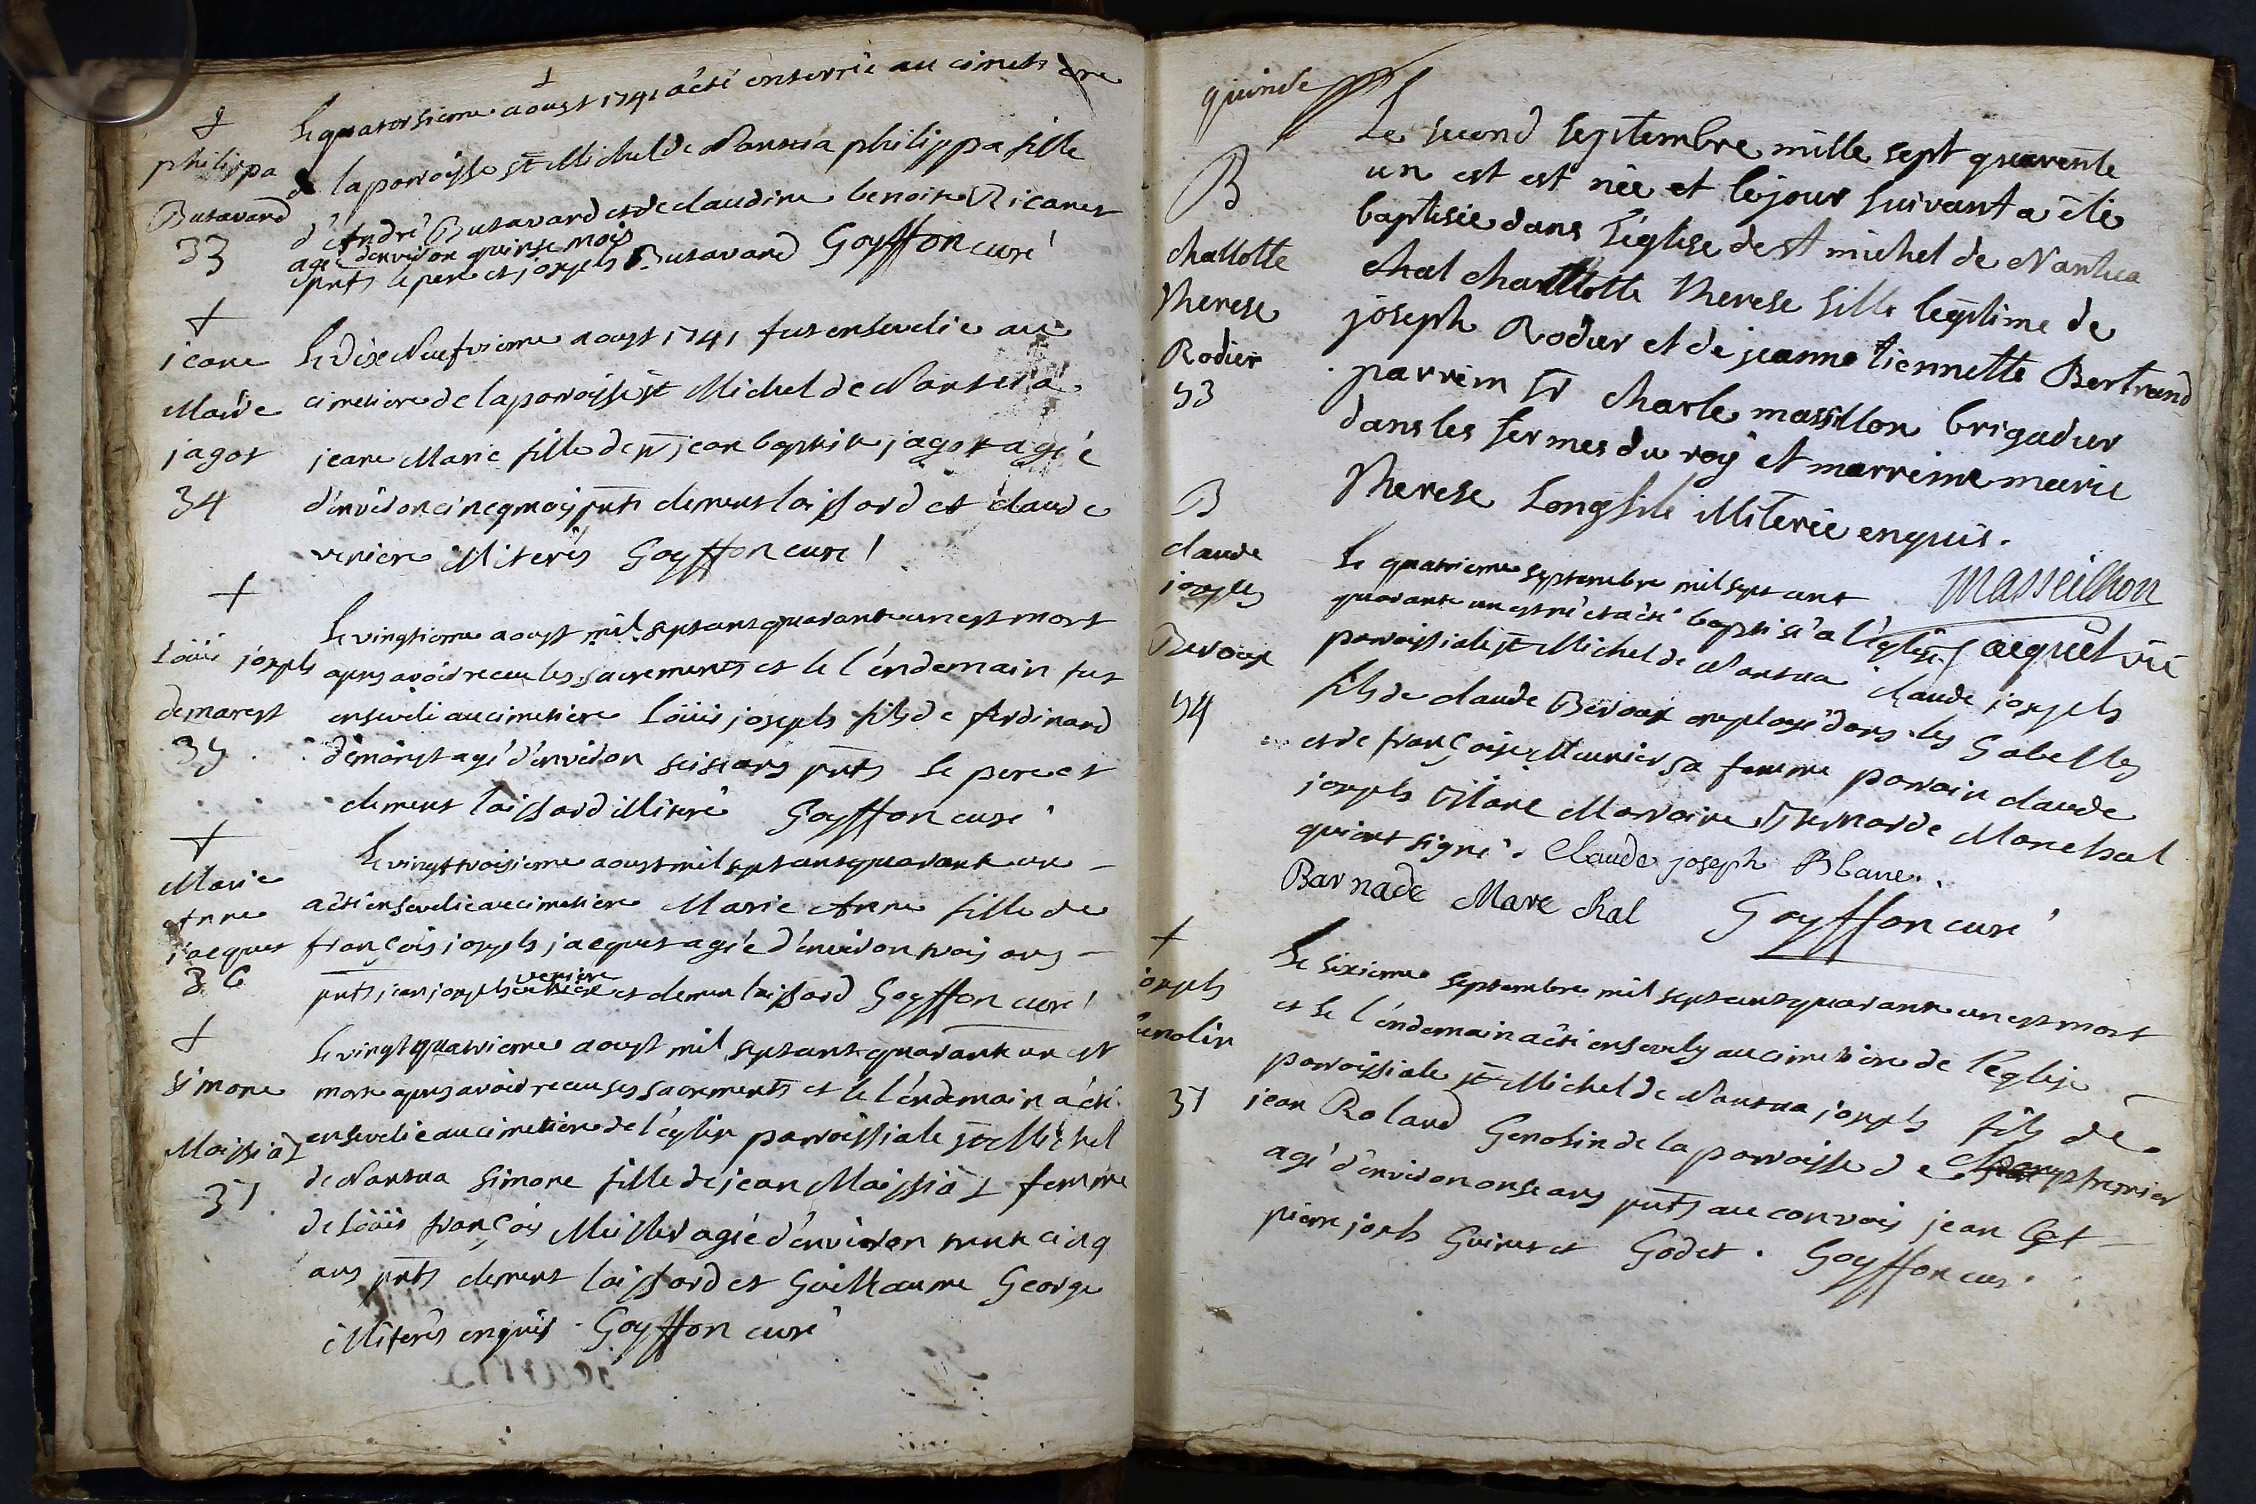 Le quatorsieme aoust 1741 a été enterrée au cimetiere
philippa
Butavard
33
de la paroisse st Michel de Nantua philippa fille
d'André Butavard et de claudine benoite Ricaret
agée d'environ quinse mois
pnts le pere et joseph Butavard Goyffon curé
jeane
Marie
jagot
34
Le Dix Neufvieme aoust 1741 fut ensevelie au
cimetiere de la paroisse st Michel de Nantua
jeane Marie fille de sr jean baptiste jagot agée
d'environ cinq mois pnts clement laissard et claude
veniere illiterés Goyffon curé
Loüis joseph
demarest
35
Le vingtieme aoust mil septant quarante un est mort
apres avoir receu les sacrements et le l'endemain fut
enseveli au cimetiere Loüis joseph fils de ferdinand
demarest agé d'environ seise ans pnts le pere et
clement laissard illiteré Goyffon curé
Marie
Anne
jacquet
36
Le vingt troisieme aoust mil septant quarante un
a été ensevelie au cimetiere Marie Anne fille de
françois joseph jacquet agée d'environ trois ans
pnts jean joseph veniere et clement laissard Goyffon curé
simone
Maissiat
37
Le vingt quatrieme aoust mil septant quarante un est
morte apres avoir receu ses sacrements et le l'endemain a été
ensevelie au cimetiere de l'église parroissiale st Michel
de Nantua simone fille de jean Maissiat femme
de Loüis françois Muiller agée d'environ trente cinq
ans pnts clement laissard et Guillaume George
illiterés enquis. Goyffon curé
quinse
B
challotte
therese
Rodier
53
Le second septembre mille sept quarente
un est est née et le jour suivant a été
baptisée dans l'église de st michel de Nantua
chal charllotte therese fille legitime de
joseph Rodier et de jeanne tiennette Bertrand
parrein sr charle massillon brigadier
dans les fermes du roy et marreine marie
therese Longfile illiterée enquis.
Masseilhon
Jacquet vic
B
claude
joseph
Bevoux
54
Le quatrieme septembre mil sept cent
quarante un est né et a été baptisé a l'église
parroissiale st Michel de Nantua claude joseph
fils de claude Bevoux employé dans les Gabelles
et de françoise Meunier sa femme parrain claude
joseph Blanc Marraine Bernarde Marechal
qui ont signé. Claude joseph Blanc.
Barnade Mare chal Goyffon curé
joseph
Genolin
37
Le sixieme septembre mil septant quarante un est mort
et le l'endemain a été ensevely au cimetiere de l'eglise
parroissiale st Michel de Nantua joseph fils de
jean Roland Genolin de la parroisse de Champfremier
agé d'environ onse ans pnts au convois jean
pierre joseph Guinet et Godet. Goyffon curé